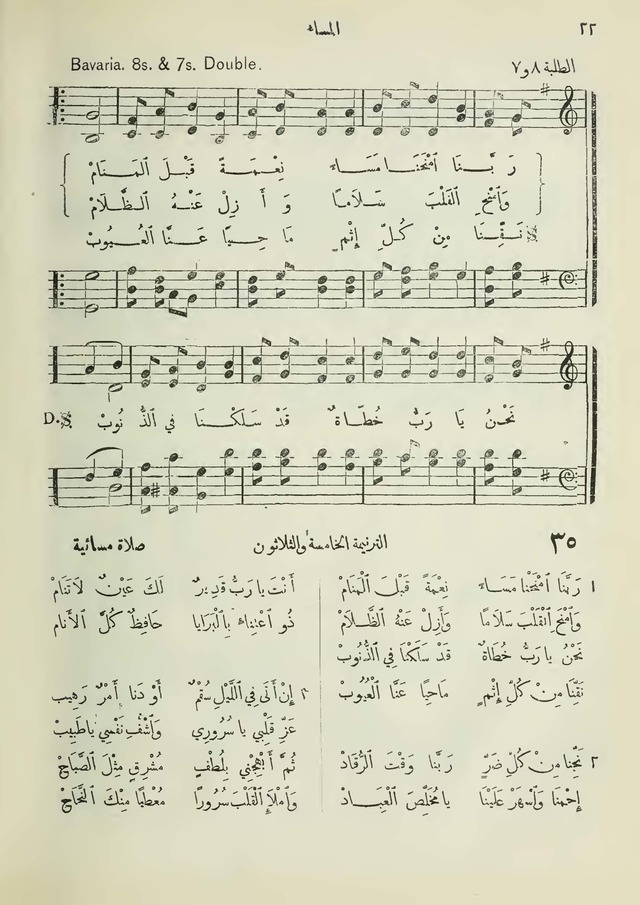 المساء ٢٢
Bavaria. 8s. & 7s. Double. الطلبة ٨ و ٧
رَبَّنَا ٱمْنَحْنَا مَسَاءً نِعْمَةً قَبْلَ ٱلْمَنَامْ
وَٱمْنَحِ ٱلْقَلْبَ سَلَامًا وَأَزِلْ عَنْهُ ٱلظَّلَامْ
نَقِّنَا مِنْ كُلِّ إِثْمٍ مَاحِيًا عَنَّا ٱلْعُيُوبْ
نَحْنُ يَا رَبُّ خُطَاةٌ قَدْ سَلَكْنَا فِي ٱلذُّنُوبْ D.S.
٣٥ الترنيمة الخامسة والثلاثون صلاة مسائية
١ رَبَّنَا ٱمْنَحْنَا مَسَاءً نِعْمَةً قَبْلَ ٱلْمَنَامْ
وَٱمْنَحِ ٱلْقَلْبَ سَلَامًا وَأَزِلْ عَنْهُ ٱلظَّلَامْ
نَحْنُ يَا رَبُّ خُطَاةٌ قَدْ سَلَكْنَا فِي ٱلذُّنُوبْ
نَقِّنَا مِنْ كُلِّ إِثْمٍ مَاحِيًا عَنَّا ٱلْعُيُوبْ
٢ نَجِّنَا مِنْ كُلِّ ضَرٍّ رَبَّنَا وَقْتَ ٱلرُّقَادْ
إِحْمِنَا وَٱسْهَرْ عَلَيْنَا يَا مُخَلِّصَ ٱلْعِبَادْ
أَنْتَ يَا رَبُّ قَدِيرٌ لَكَ عَيْنٌ لَا تَنَامْ
ذُو ٱعْتِنَاءٍ بِٱلْبَرَايَا حَافِظٌ كُلَّ ٱلْأَنَامْ
٣ إِنْ أَتَى فِي ٱللَّيْلِ سُقْمٌ أَوْ دَنَا أَمْرٌ رَهِيبْ
عَزِّ قَلْبِي يَا سُرُورِي وَٱشْفِ نَفْسِي يَا طَبِيبْ
ثُمَّ أَبْهِجْنِي بِلُطْفٍ مُشْرِقٍ مِثْلَ ٱلصَّبَاحْ
وَٱمْلَإِ ٱلْقَلْبَ سُرُورًا مُعْطِيًا مِنْكَ ٱلنَّجَاحْ